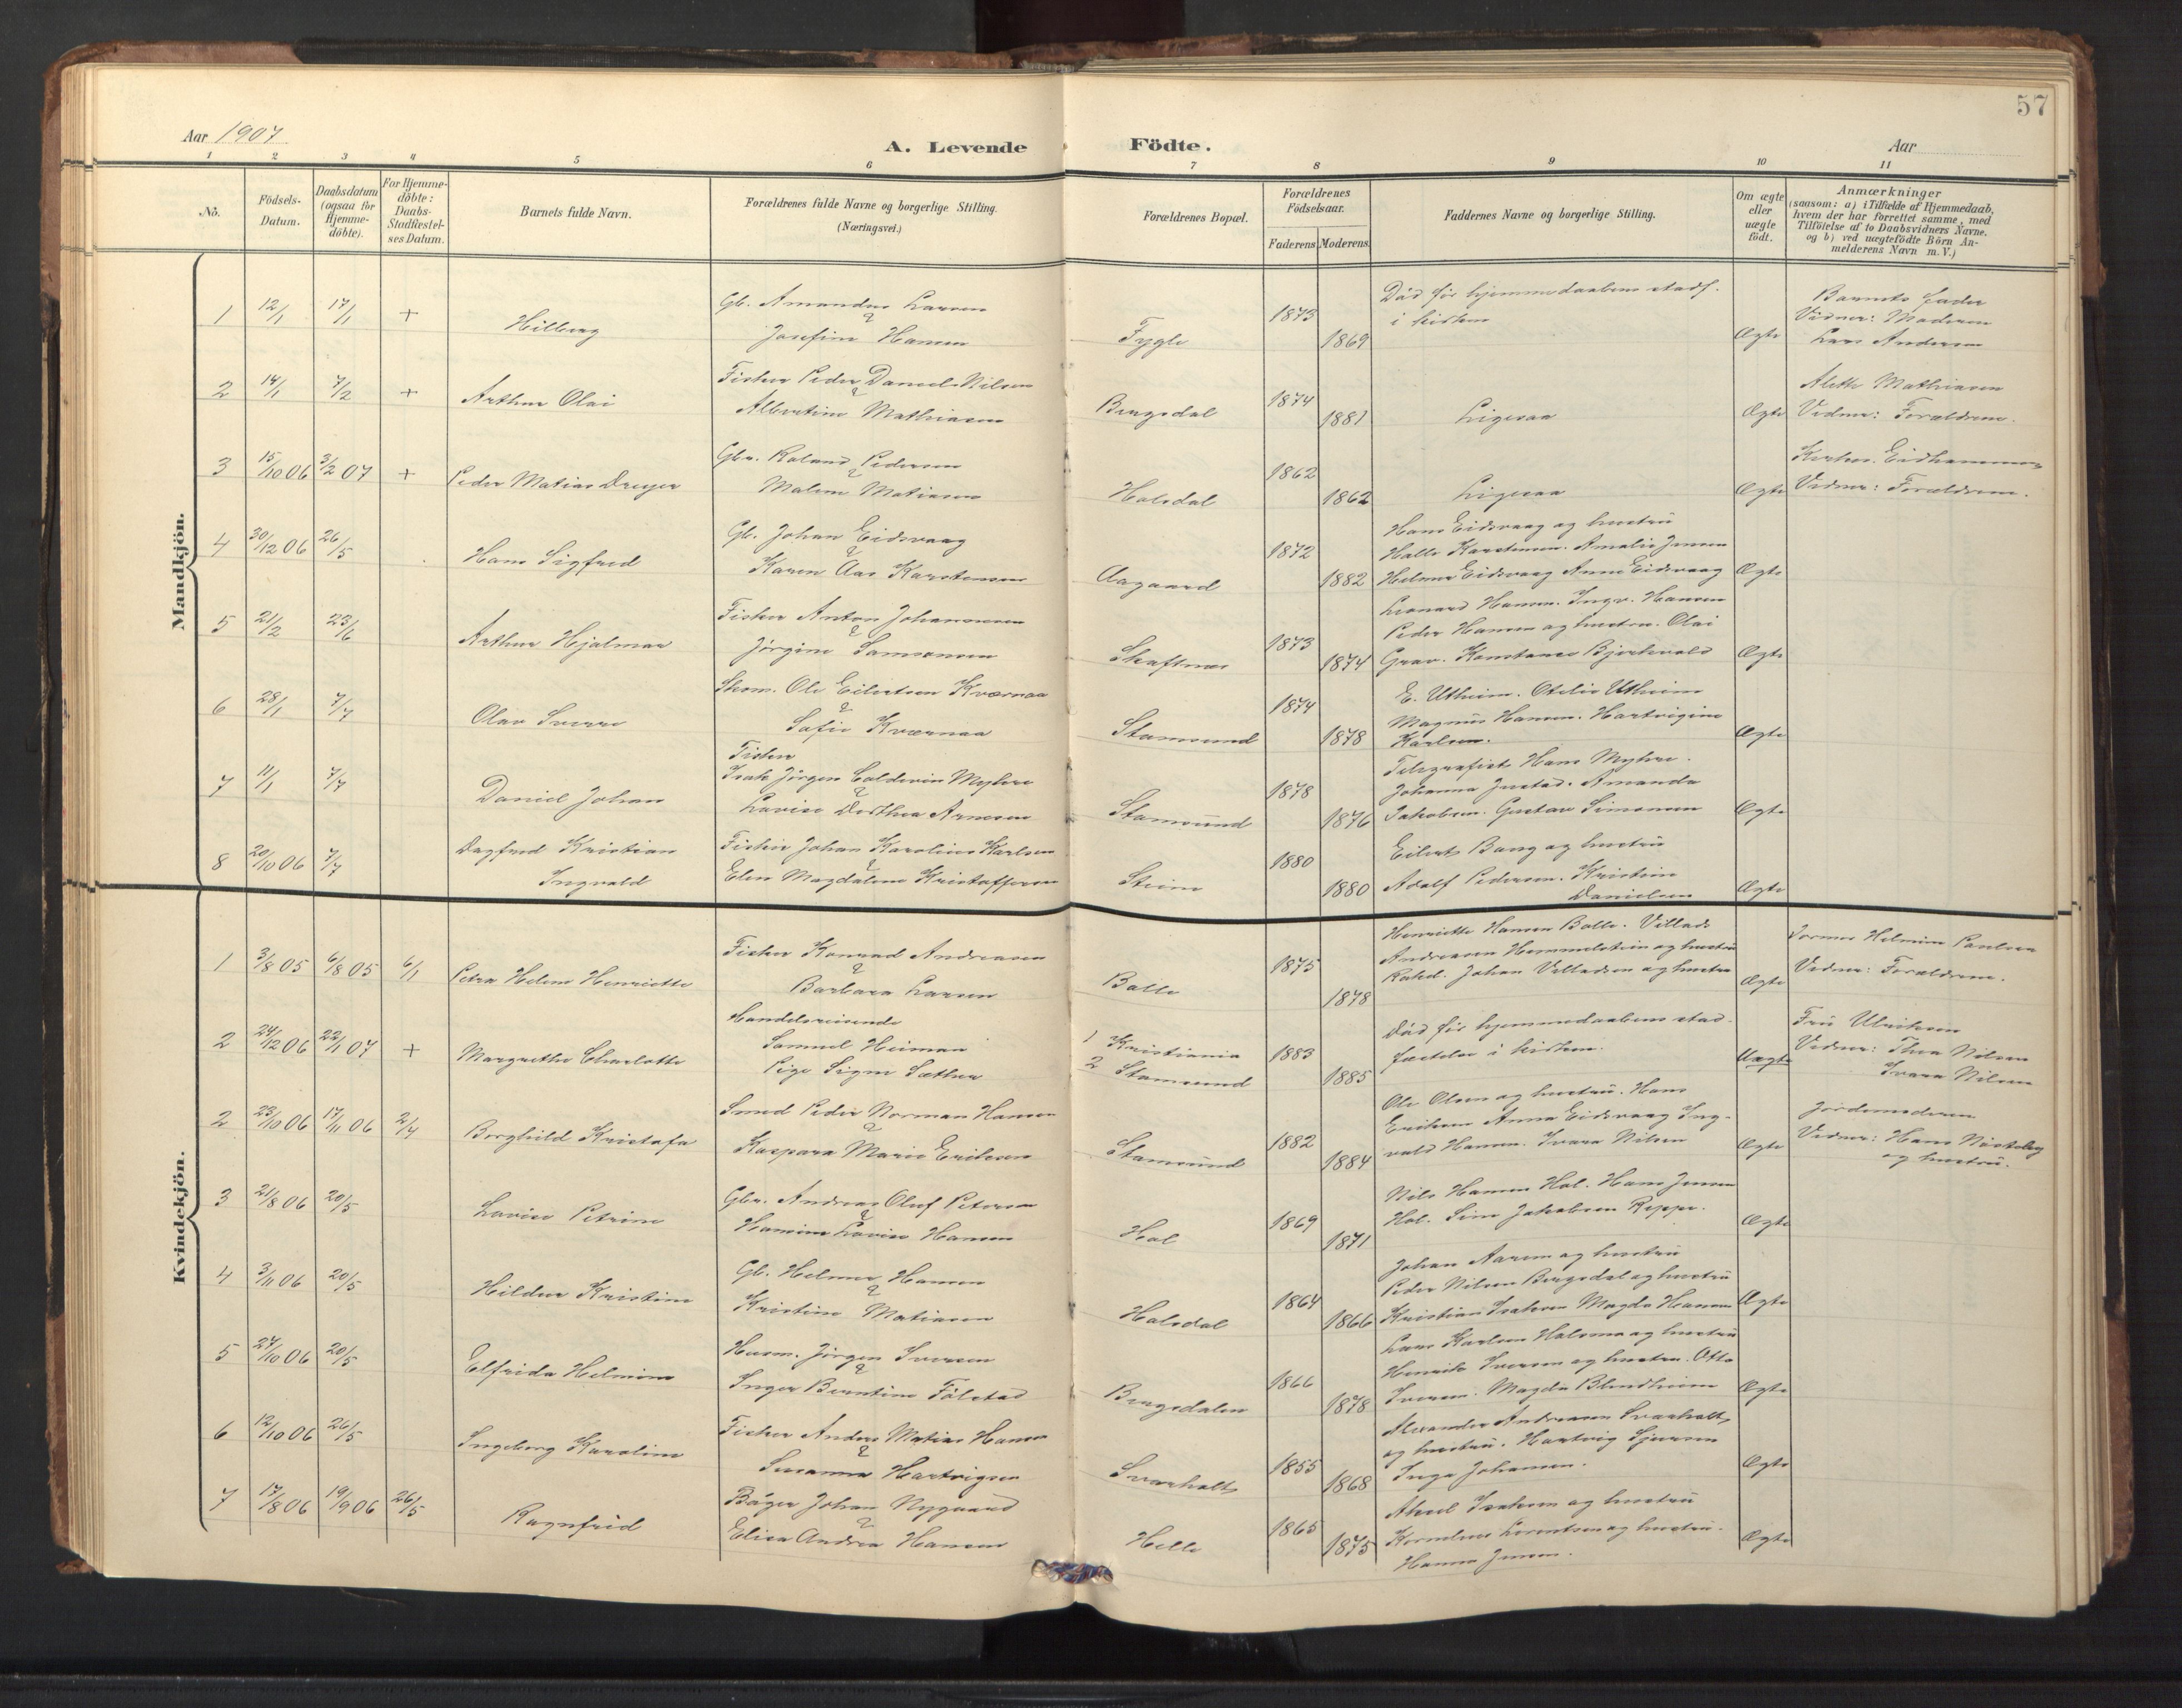 57
Aar 1907
A. Levende Födte.
Aar
1 2 3 4 5 6 7 8 9 10 11
No.
Födsels-Datum.
Daabsdatum (ogsaa for Hjemme-döbte).
For Hjemme-döbte: Daabs-Stadfæstel-ses Datum.
Barnets fulde Navn.
Forældrenes fulde Navne og borgerlige Stilling.
(Næringsvei.)
Forældrenes Bopæl.
Forældrenes Födselsaar.
Faderens Moderens
Faddernes Navne og borgerlige Stilling.
Om ægte eller uægte födt.
Anmærkninger
(saasom: a) i Tilfælde af Hjemmedaab,
hvem der har forrettet samme, med
Tilföielse af to Daabsvidners Navne.
og b) ved uægtefödte Börn An-
melderens Navn m. V.)
Mandkjön.
1 12/1 17/1 + Hilberg
Gb. Amandus Larsen
&
Josefine Hansen
Fygle 1873 1869
Död før hjemmedaabens stadf.
i kirken
Ægte
Barnets fader
Vidner: Moderen
Lars Andersen
2 14/1 7/2 + Arthur Olai
Fisker Peder Daniel Nilsen
&
Albertine Mathiasen
Bergsdal 1874 1881
Ligesaa
Ægte
Aleth Mathiasen
Vidner: Forældrene.
3 15/10 06 3/2 07 + Peder Matias Dreyer
Gbr. Roland Pedersen
&
Malene Matiasen
Halsdal 1862 1862
Ligesaa
Ægte
Vidner: Forældrene.
4 30/12 06 26/5 Hans Sigfred
Gb. Johan Eidsvaag
&
Karen Aas Karstensen
Aagaard 1872 1882
Hans Eidsvaag og hustru
Halle Karstensen. Amalie Jensen
Helmer Eidsvaag Anne Eidsvaag
Ægte
5 21/2 23/6 Arthur Hjalmar
Fisker Anton Johannesen
&
Jörgine Samsonsen
Skaftnes 1873 1874
Leonard Hansen. Ingv. Hansen
Peder Hansen og hustru. Olai
Grav. Konstance Bjerkvold
Ægte
6 28/1 7/7 Olav Sverre
Skom. Ole Eilertsen Kværnaa
&
Sofie Kværnaa
Stamsund 1874 1878
E. Utheim. Otelie Utheim
Magnus Hansen. Hartvigine
Karlsen.
Ægte
7 11/1 7/7 Daniel Johan
Fisker
Isak Jörgen Baldevin Myhre
&
Lovise Dorthea Arnesen
Stamsund 1878 1876
Telegrafist Hans Myhre.
Johanna Justad. Amanda
Jakobsen. Gustav Simonsen
Ægte
8 20/10 06 7/7 Dagfred Kristian
Ingvald
Fisker Johan Karolius Karlsen
&
Elen Magdalene Kristoffersen
Steine 1880 1880
Eilert Bang og hustru
Adolf Pedersen. Kristine
Danielsen
Ægte
Kvindekjön.
1 3/8 05 6/8 05 6/1 Petra Helene Henriette
Fisker Konrad Andreasen
&
Barbara Larsen
Balle 1875 1878
Henriette Hansen Balle. Villads
Andreasen Hemmelstein og hustru
Rakel. Johan Villadsen og hustru
Ægte
Helmine Paulsen
Vidner: Forældrene.
2 24/12 06 22/1 07 + Margrethe Charlotte
Handelsreisende
Samuel Heiman
Pige Signe Sæther
1 Kristiania
2 Stamsund
1883 1885
Död før hjemmedaabens stad-
fæstelse i kirken.
Uægte
Fru Ulriksen
Vidner: Thea Nilsen
Ivara Nilsen
2 23/10 06 17/11 06 2/4 Borghild Kristofa
Smed Peder Norman Hansen
&
Kaspara Marie Eriksen
Stamsund 1882 1884
Ole Olsen og hustru. Hans
Eriksen Anna Eidsvaag Ing-
vald Hansen. Ivara Nilsen
Ægte
Jordemoderen
Vidner: Hans
og hustru.
3 21/8 06 20/5 Lovise Petrine
Gbr. Andreas Oluf Petersen
&
Hansine Lovise Hansen
Hol 1869 1871
Nils Hansen Hol. Hans Jensen
Hol. Sine Jakobsen Reppe.
Ægte
4 3/11 06 20/5 Hildur Kristine
Gb. Helmer Hansen
&
Kristine Matiasen
Halsdal 1864 1866
Johan Aasen og hustru
Peder Nilsen Bergsdal og hustru
Kristian Isaksen Magda Hansen
Ægte
5 27/10 06 20/5 Elfrida Helmine
Husm. Jörgen Iversen
&
Inger Berntine Fölstad
Bergsdalen 1866 1878
Lars Karlsen Halsmo og hustru
Henrik Iversen og hustru. Otto
Iversen. Magda Blindheim
Ægte
6 12/10 06 26/5 Ingeborg Karoline
Fisker Anders Matias Hansen
&
Susanna Hartvigsen
Svarholt 1855 1868
Alexander Andreasen Svarholt
og hustru. Hartvig
Inga Johansen.
Ægte
7 17/8 06 19/9 06 26/5 Ragnfrid
Bager Johan Nygaard
&
Elisa Andrea Hansen
Helle 1865 1875
Aksel Isaksen og hustru
Kornelius Lorentsen og hustru.
Hanna Jensen.
Ægte